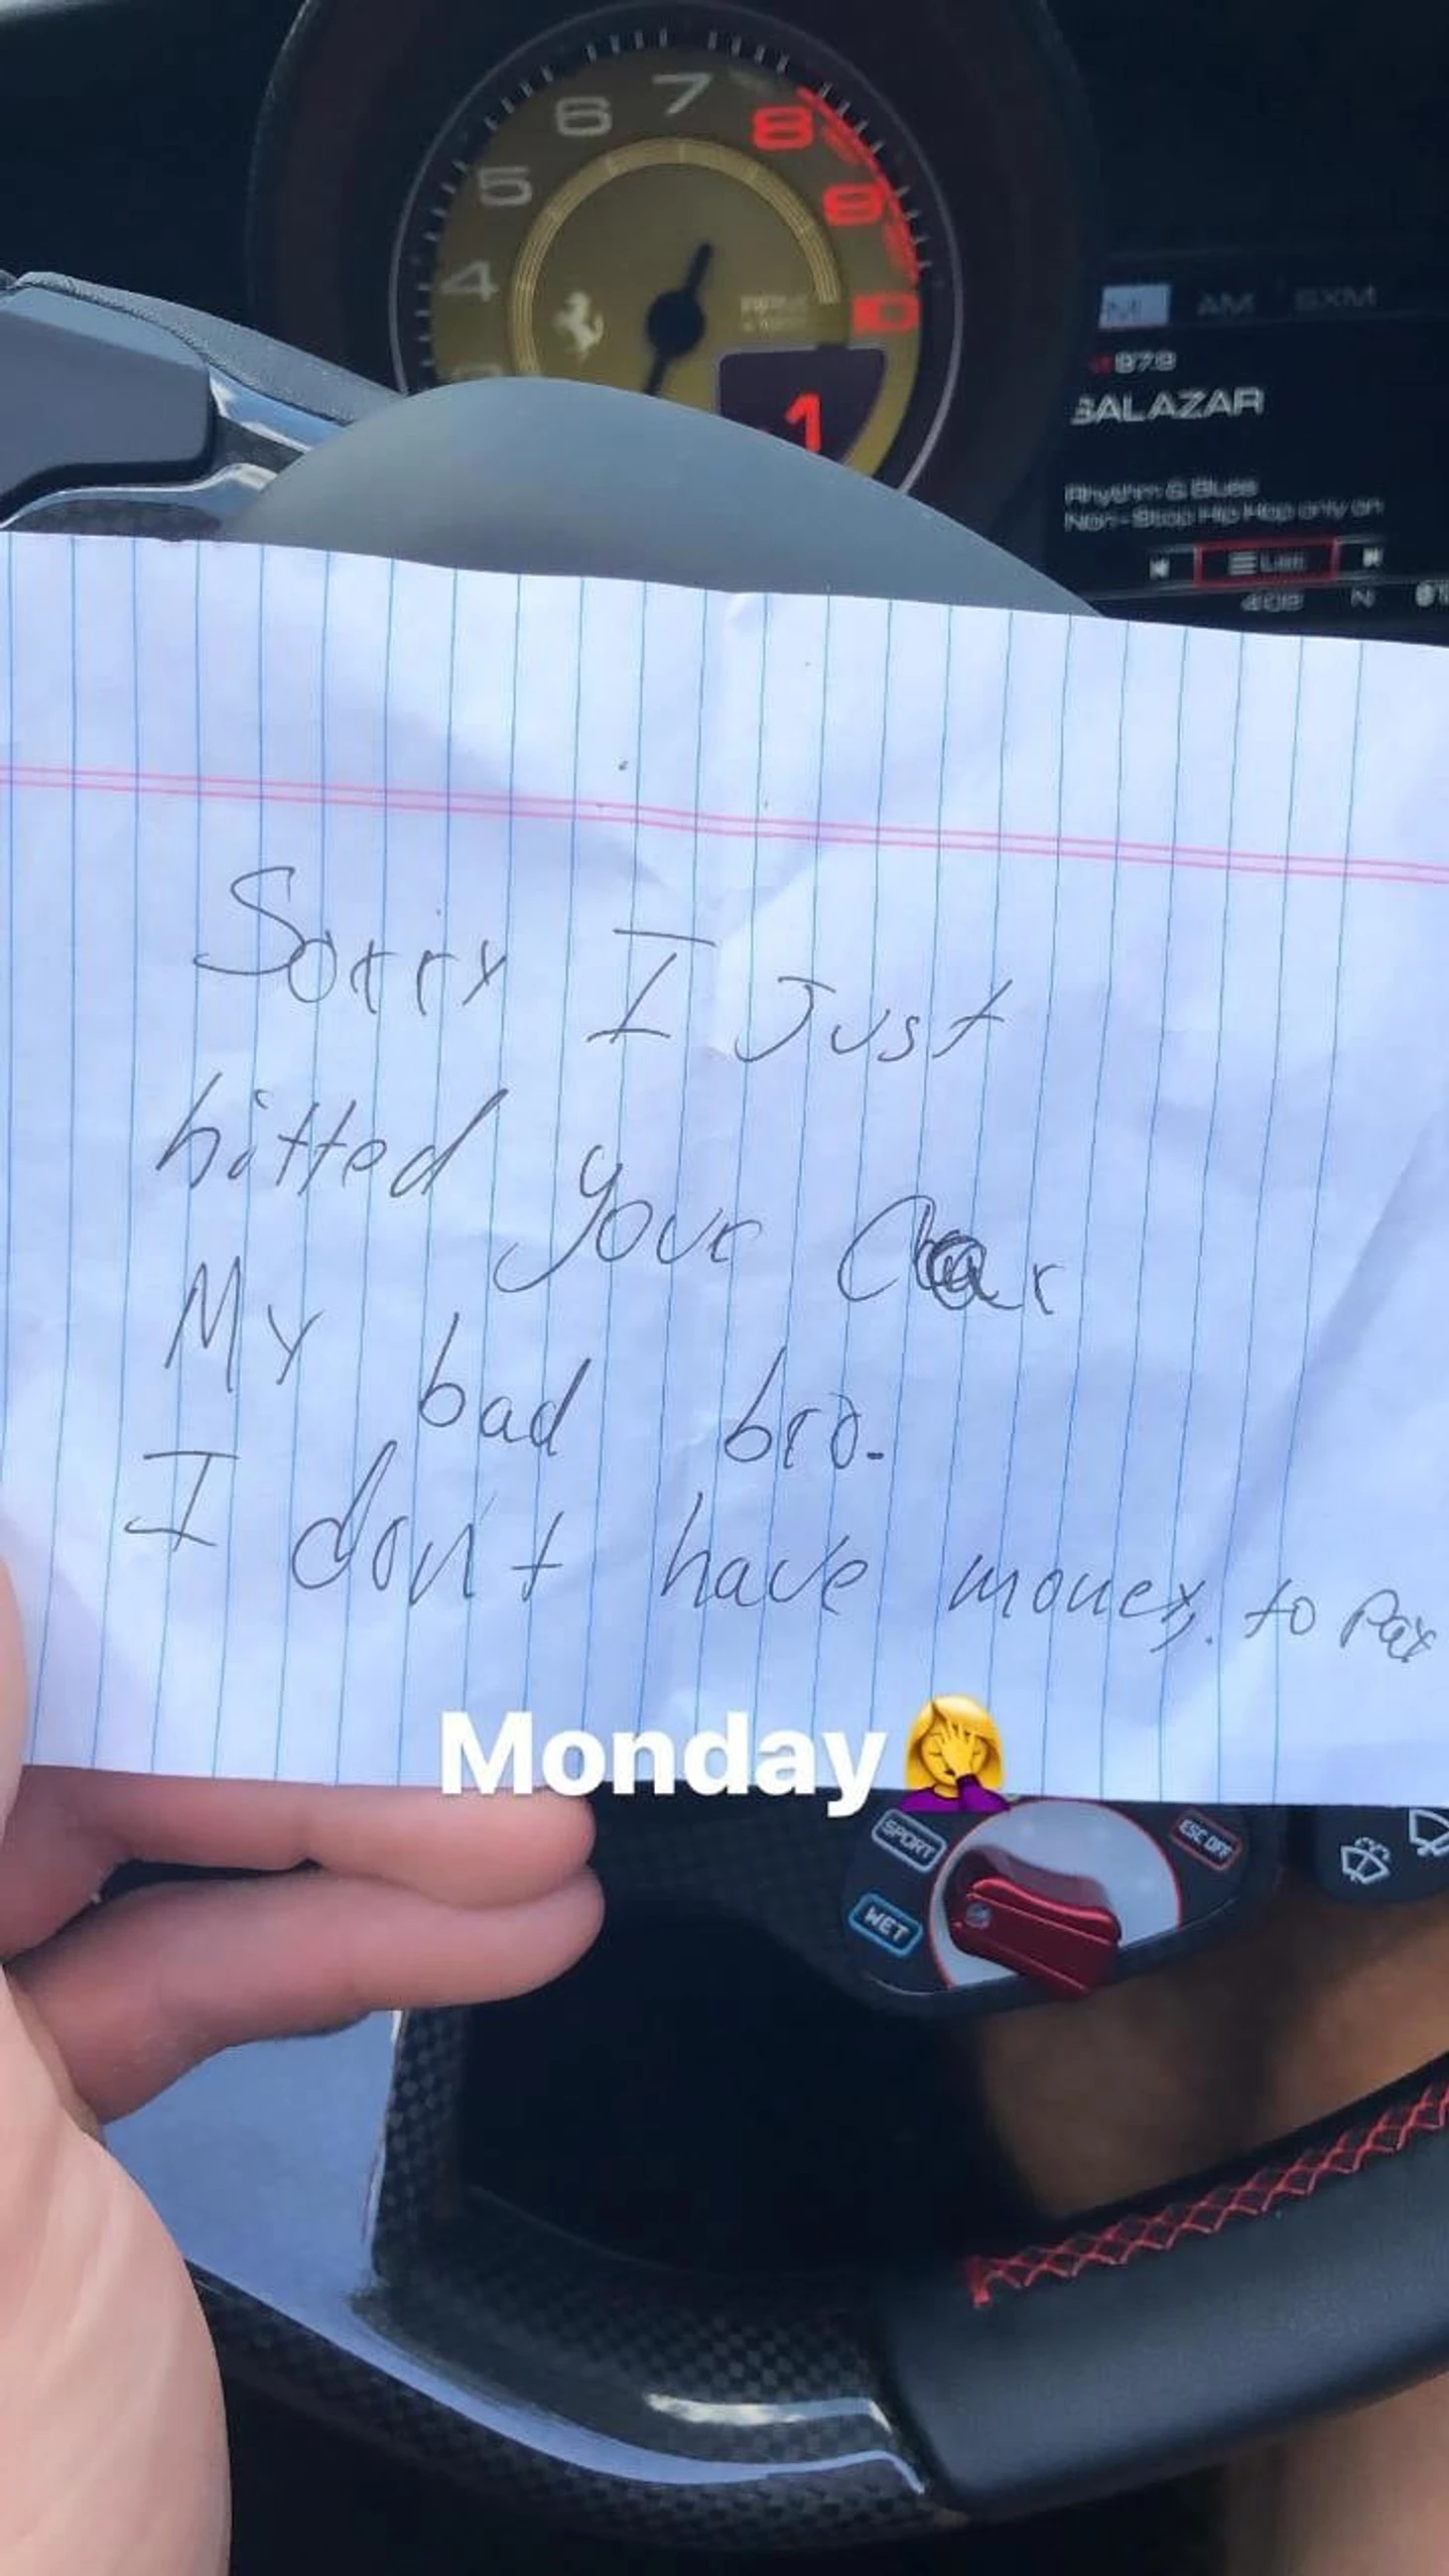 5
6
7
8
9
10
4
1
AM
SXM
87.9
SALAZAR
Rhythm & Blues
Non-Stop Hip Hop only on
List
N
Sorry I Just
hitted your Car
My bad bro.
I don't have money, to Pay
Monday🤦‍♀️
SPORT
ESC OFF
WET